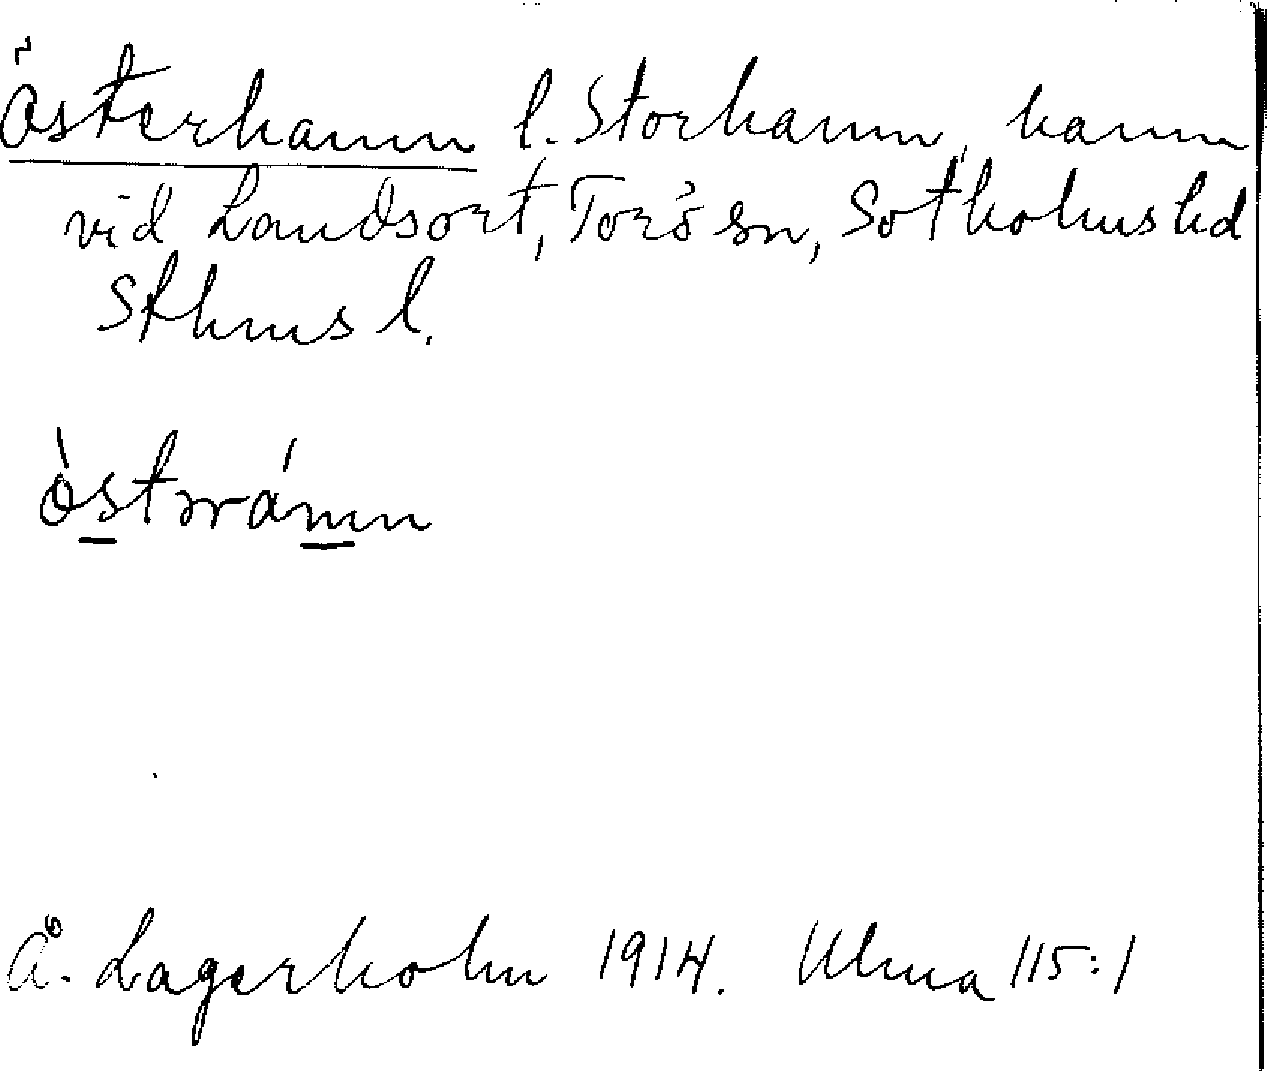 Österhamn l. Storhamn, hamn
vid Landsort, Torö sn, Sotholms hd
Sthms l.
òstrrámn
Å. Lagerholm 1914. Ulma 115:1